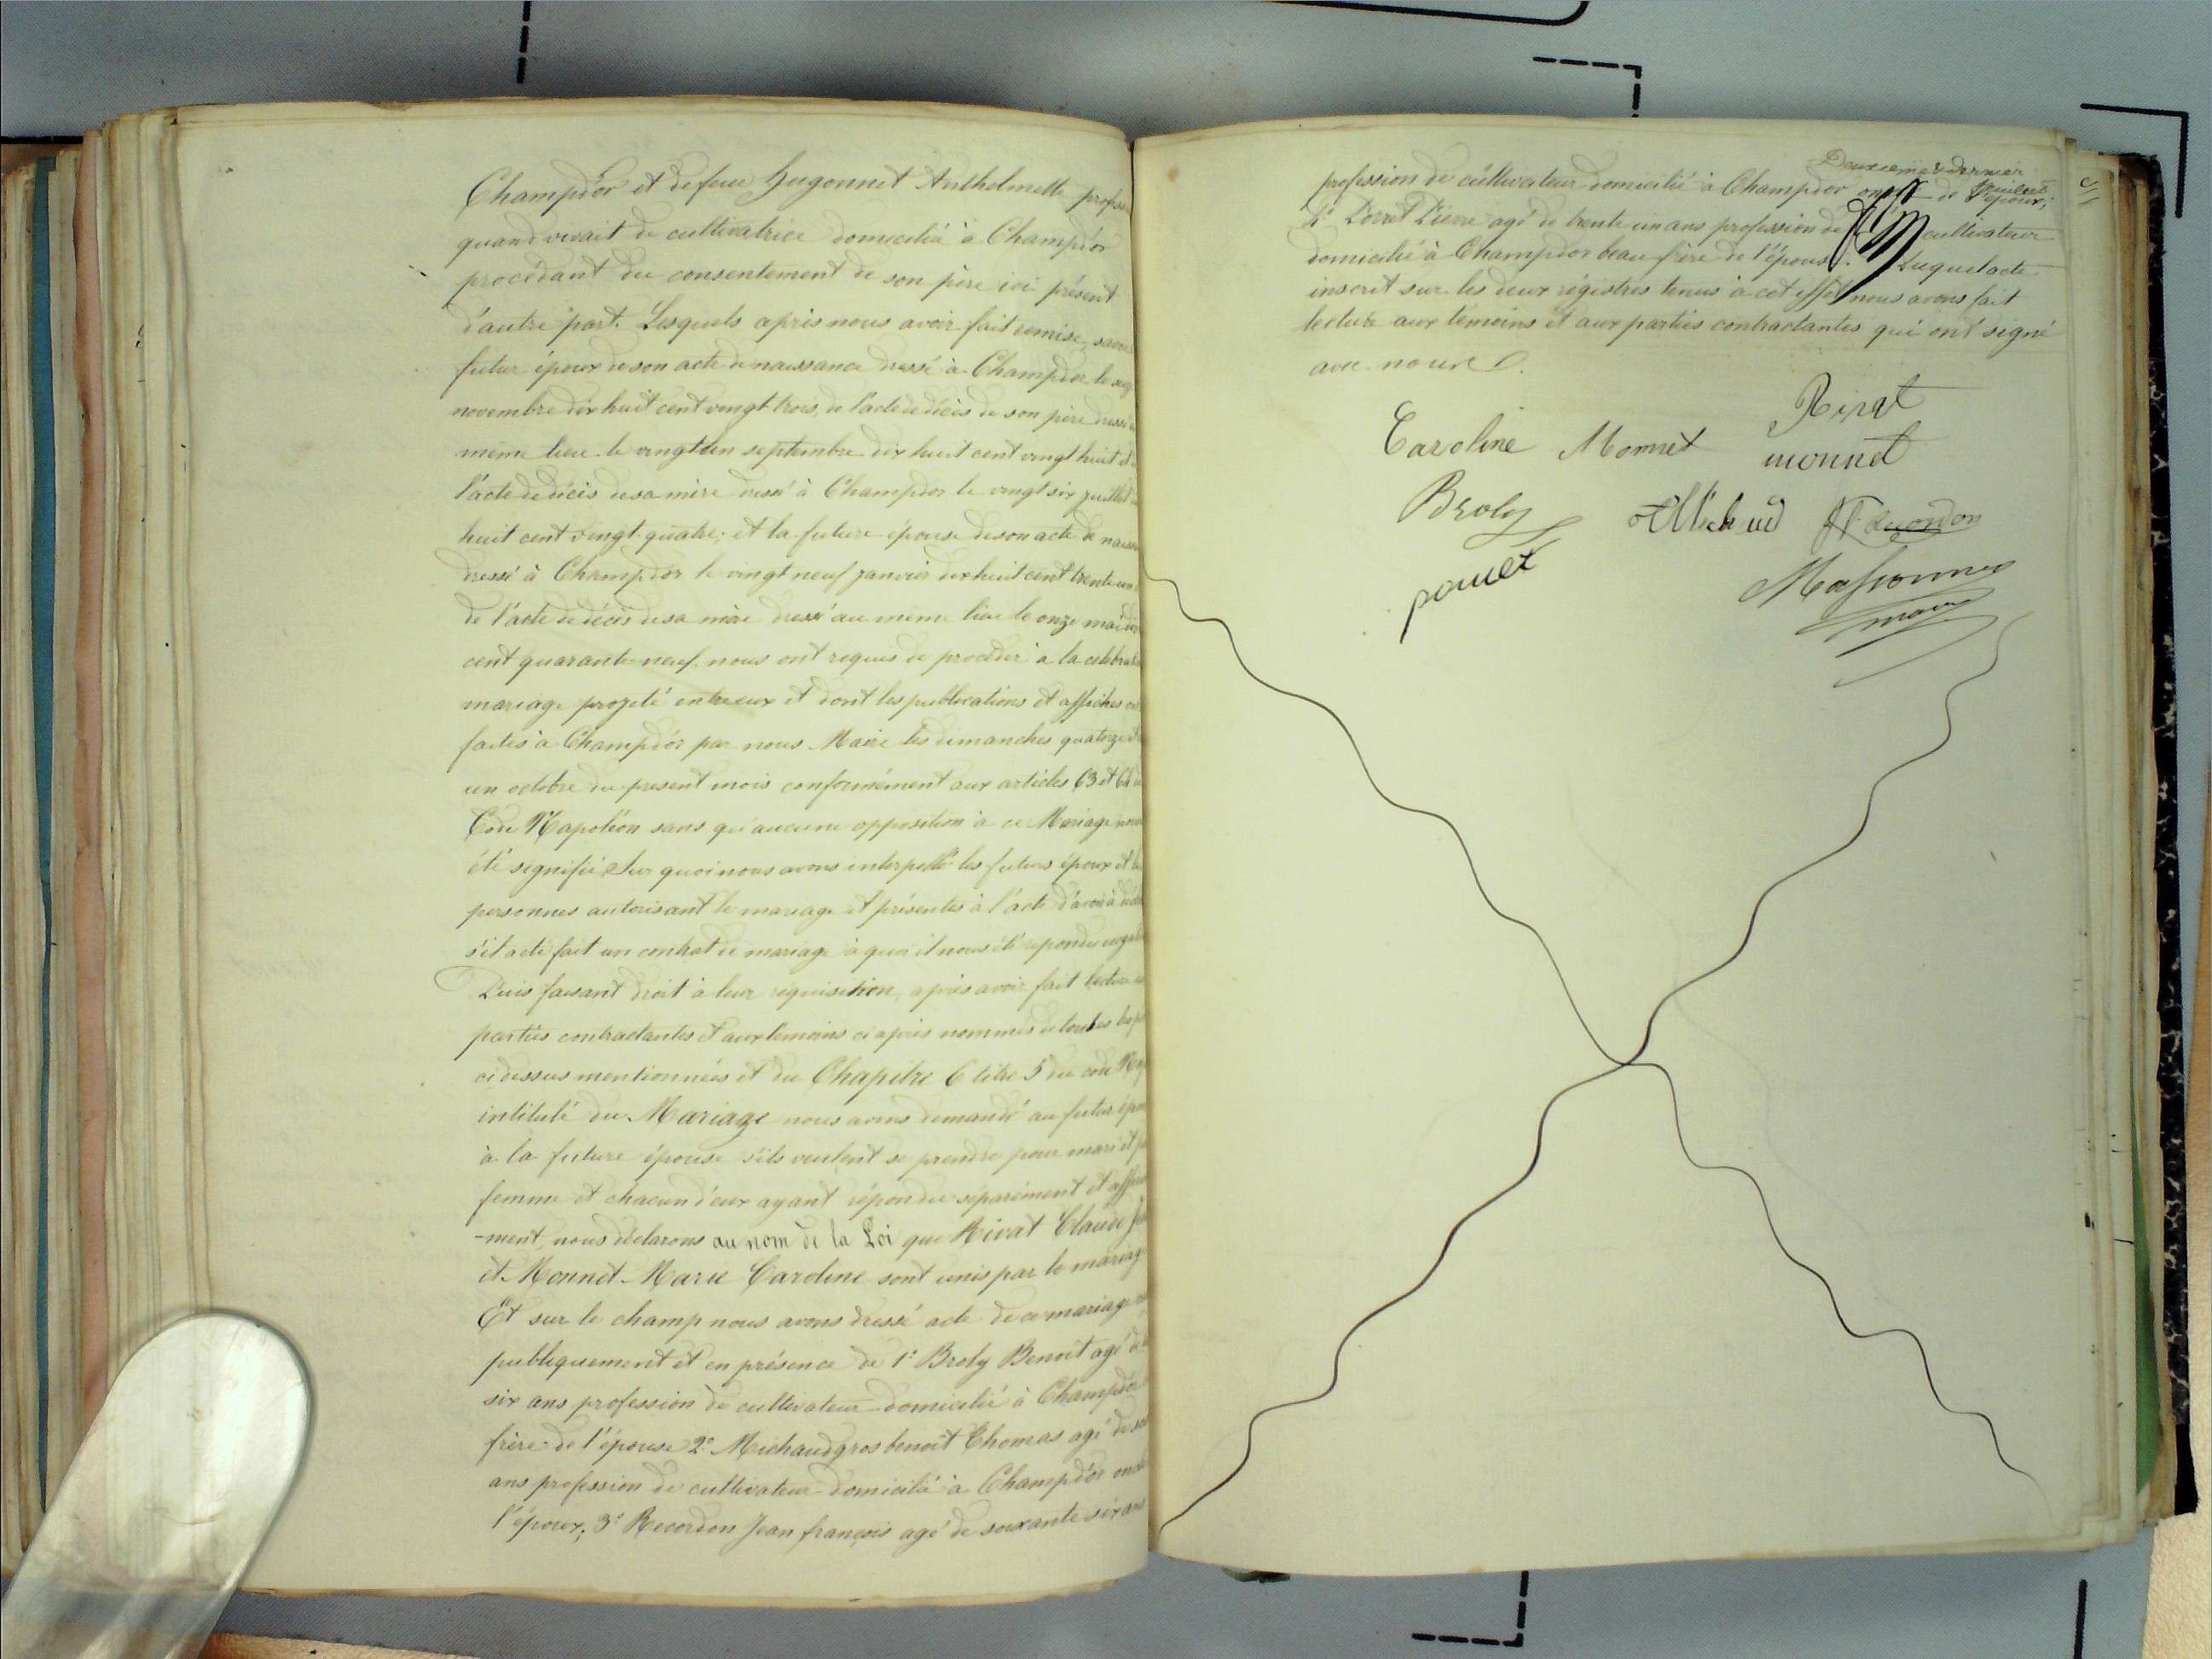 Champdor et de feue Hugonnet Anthelmette profes
quand vivait de cultivatrice domicilié à Champdor
procédant du consentement de son père ici présent
d'autre part. Lesquels après nous avoir fait remise, savoir
futur époux de son acte de naissance dressé à Champdor le
novembre dix huit cent vingt trois, de l'acte de décès de son père dressé
même lieu le vingt un septembre dix huit cent vingt huit et
l'acte de décès de sa mère dressé à Champdor le vingt six juillet
huit cent vingt quatre; et la future épouse de son acte de naiss
dressé à Champdor le vingt neuf janvier dix huit cent trente un
de l'acte de décès de sa mère dressé au même lieu le onze mai dix
cent quarante neuf, nous ont requis de procéder à la célébrat
mariage projeté entre eux et dont les publications et affiches
faites à Champdor par nous Maire les dimanches quatorze et
un octobre du présent mois conformément aux articles 63 et 64
Code Napoléon sans qu'aucune opposition à ce Mariage nous
été signifié Sur quoi nous avons interpellé les futurs époux et les
personnes autorisant le mariage et présentes à l'acte d'avoir à décl
s'il a été fait un contrat de mariage à quoi il nous été répondu
Puis faisant droit à leur réquisition, après avoir fait lecture
parties contractantes et aux témoins ci après nommés de toutes les
ci dessus mentionnées et du Chapitre 6 titre 5 du code Nap
intitulé du Mariage nous avons demandé au futur épou
à la future épouse s'ils veulent se prendre pour mari et p
femme et chacun d'eux ayant répondu séparément et affir
-ment, nous déclarons au nom de la Loi que Rivat Claude
et Monnet Marie Caroline sont unis par le mariage
Et sur le champ nous avons dressé acte de ce mariage
publiquement et en présence de 1° Broly Benoit agé de
six ans profession de cultivateur domicilié à Champdor
frère de l'épouse 2° Michaud gros benoit Thomas agé de
ans profession de cultivateur domicilié à Champdor oncle
l'époux; 3° Recordon Jean françois agé de soixante six ans
Deuxième & dernier
feuillet
profession de cultivateur domicilié à Champdor oncle de l'époux;
4° Pierre agé de trente un ans profession de cultivateur
domicilié à Champdor beau frère de l'épouse. Duquel acte
inscrit sur les deux régistres tenus à cet effet nous avons fait
lecture aux témoins et aux parties contractantes qui ont signé
avec nous.
Rivat
Caroline Monnet monnet
Broly Michaud Recordon